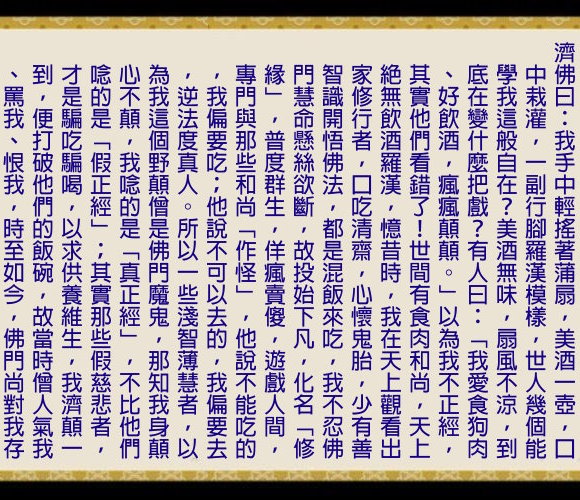 濟佛曰：我手中輕搖著蒲扇，美酒一壺，口
中栽灌，一副行腳羅漢模樣，世人幾個能
學我這般自在？美酒無味，扇風不涼，到
底在變什麼把戲？有人曰：「我愛食狗肉
、好飲酒，瘋瘋顛顛。」以為我不正經，
其實他們看錯了！世間有食肉和尚，天上
絕無飲酒羅漢，憶昔時，我在天上觀看出
家修行者，口吃清齋，心懷鬼胎，少有善
智識開悟佛法，都是混飯來吃，我不忍佛
門慧命懸絲欲斷，故投始下凡，化名「修
緣」，普度群生，佯瘋賣傻，遊戲人間，
專門與那些和尚「作怪」，他說不能吃的
，我偏要吃；他說不可以去的，我偏要去
，逆法度真人。所以一些淺智薄慧者，以
為我這個野顛僧是佛門魔鬼，那知我身顛
心不顛，我唸的是「真正經」，不比他們
唸的是「假正經」；其實那些假慈悲者，
才是騙吃騙喝，以求供養維生，我濟顛一
到，便打破他們的飯碗，故當時僧人氣我
、罵我、恨我，時至如今，佛門尚對我存